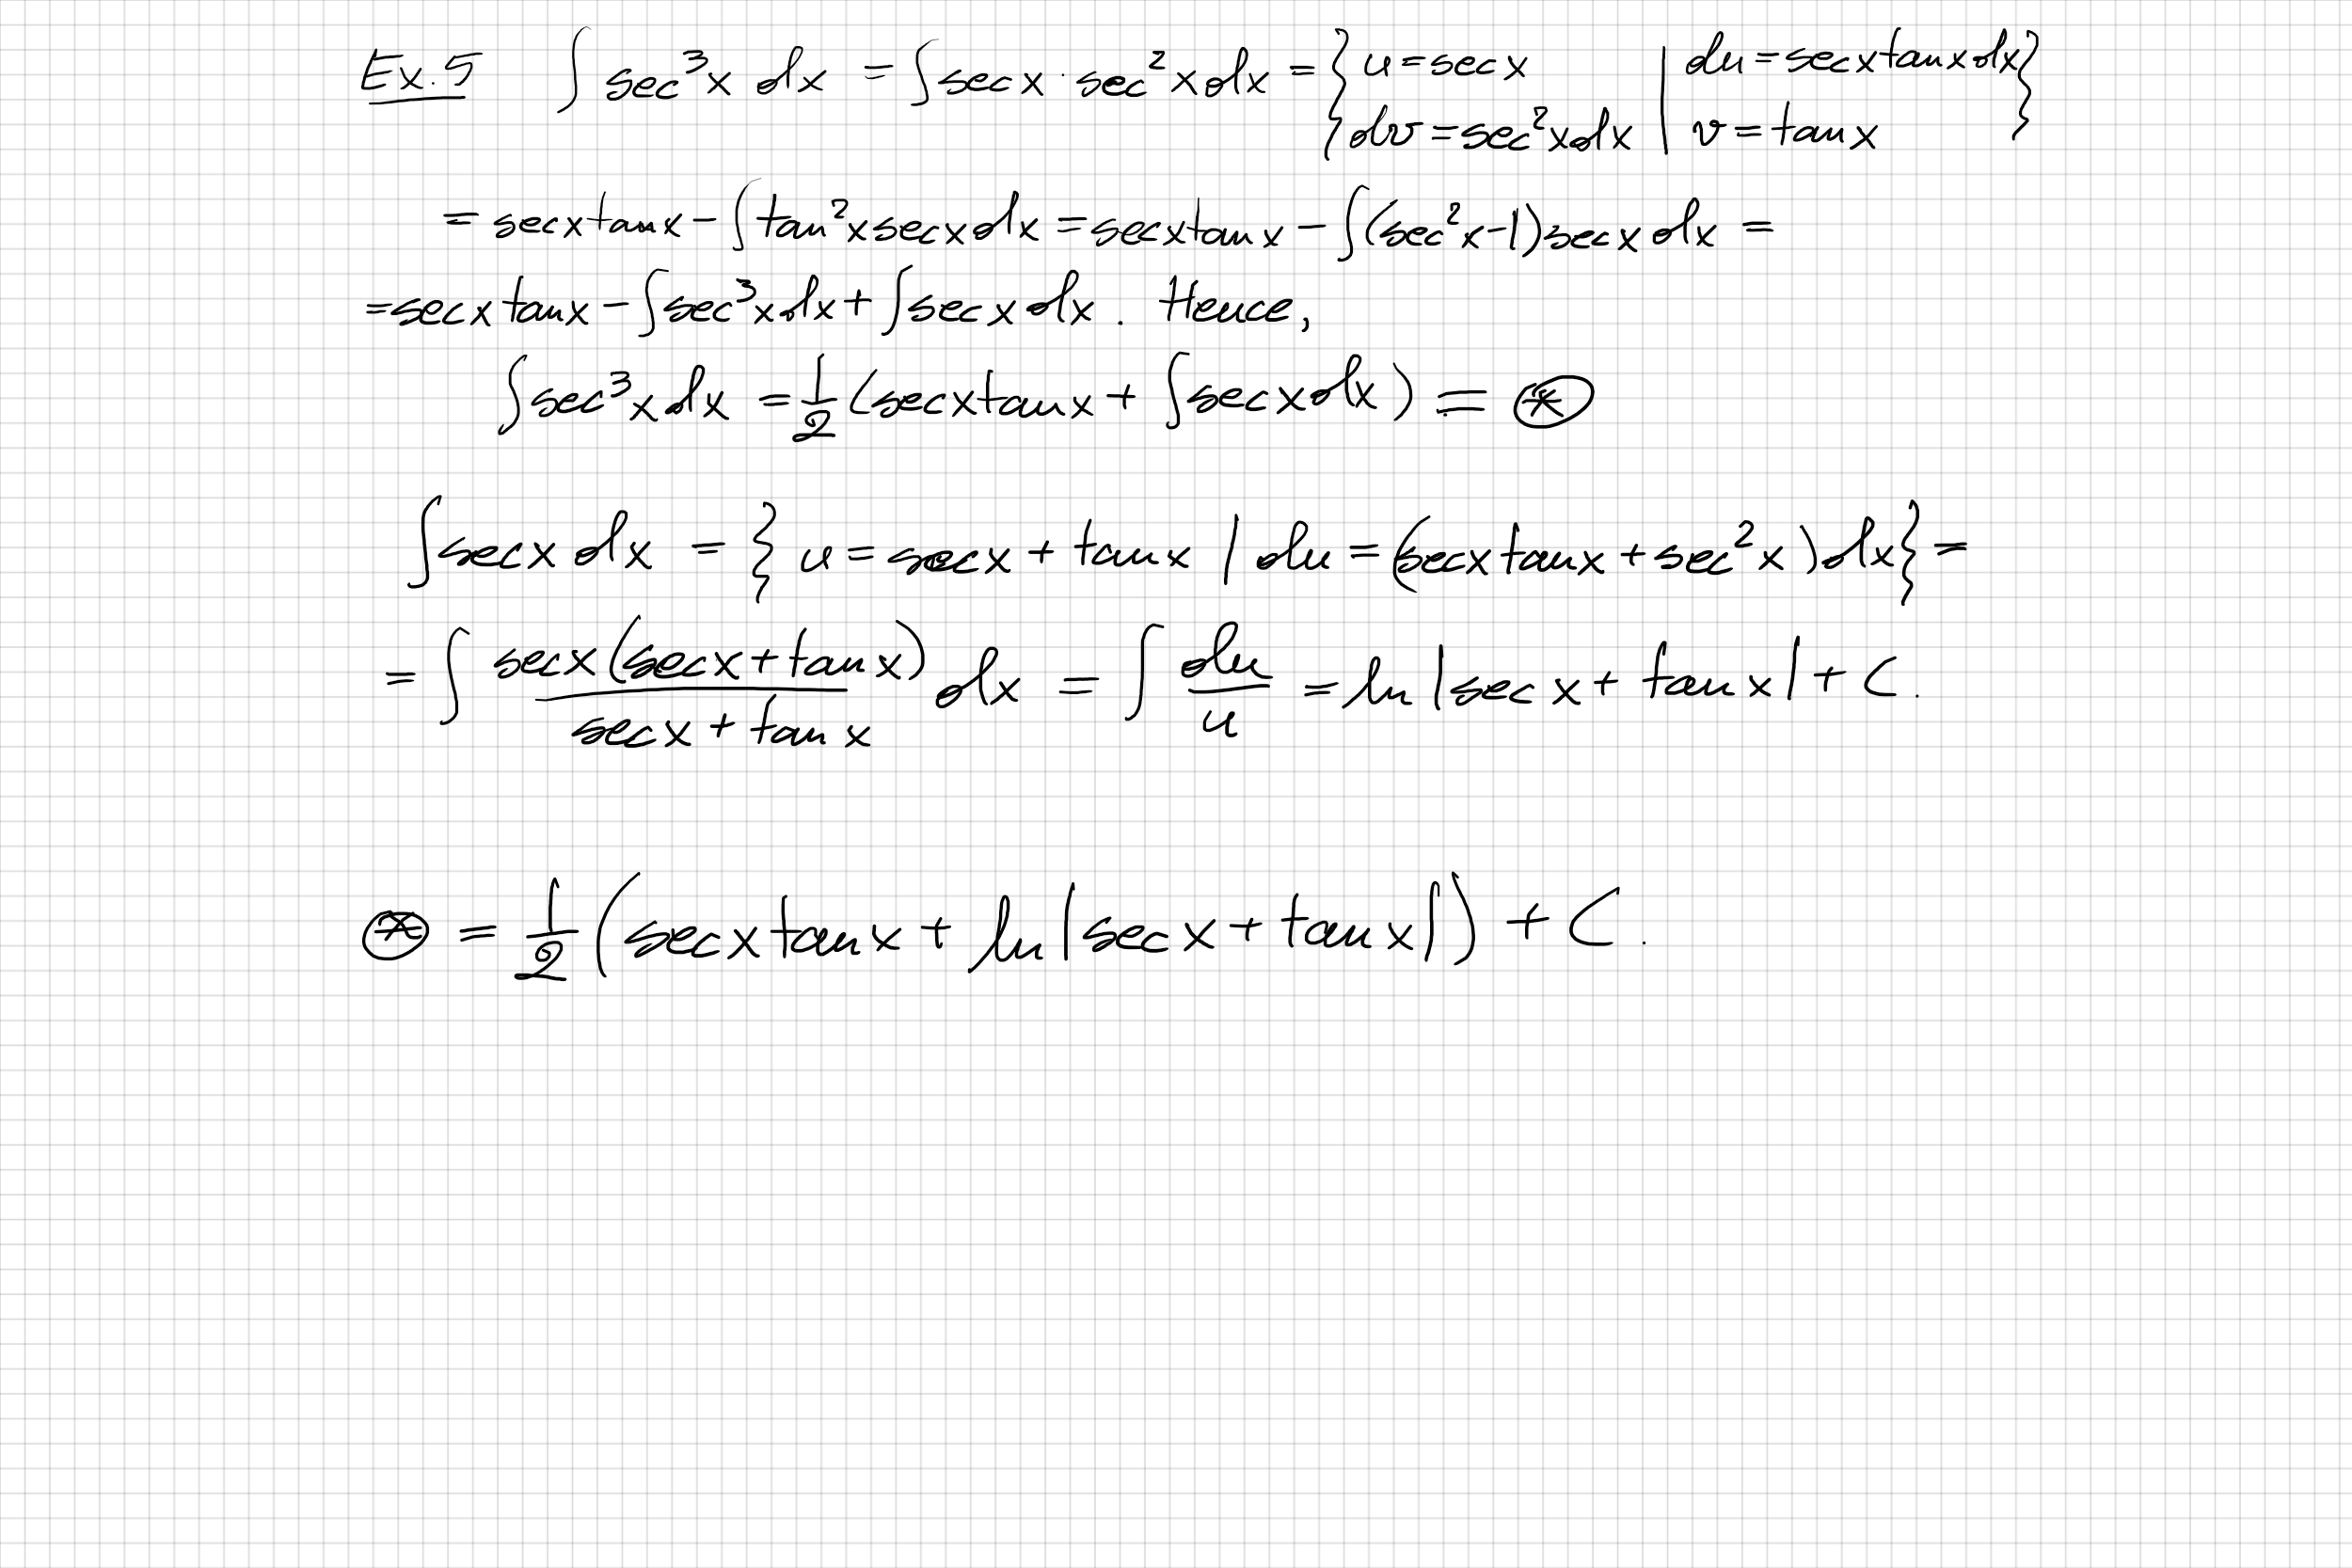 Ex.5 ∫ sec³x dx = ∫ sec x · sec²x dx = } u = sec x | du = sec x tan x dx }
} dv = sec²x dx | v = tan x }
= sec x tan x − ∫ tan²x sec x dx = sec x tan x − ∫ (sec²x−1) sec x dx =
= sec x tan x − ∫ sec³x dx + ∫ sec x dx. Hence,
∫ sec³x dx = 1/2 (sec x tan x + ∫ sec x dx) = ⊛
∫ sec x dx = } u = sec x + tan x | du = (sec x tan x + sec²x) dx } =
= ∫ sec x (sec x + tan x) / (sec x + tan x) dx = ∫ du/u = ln |sec x + tan x| + C.
⊛ = 1/2 (sec x tan x + ln |sec x + tan x|) + C.